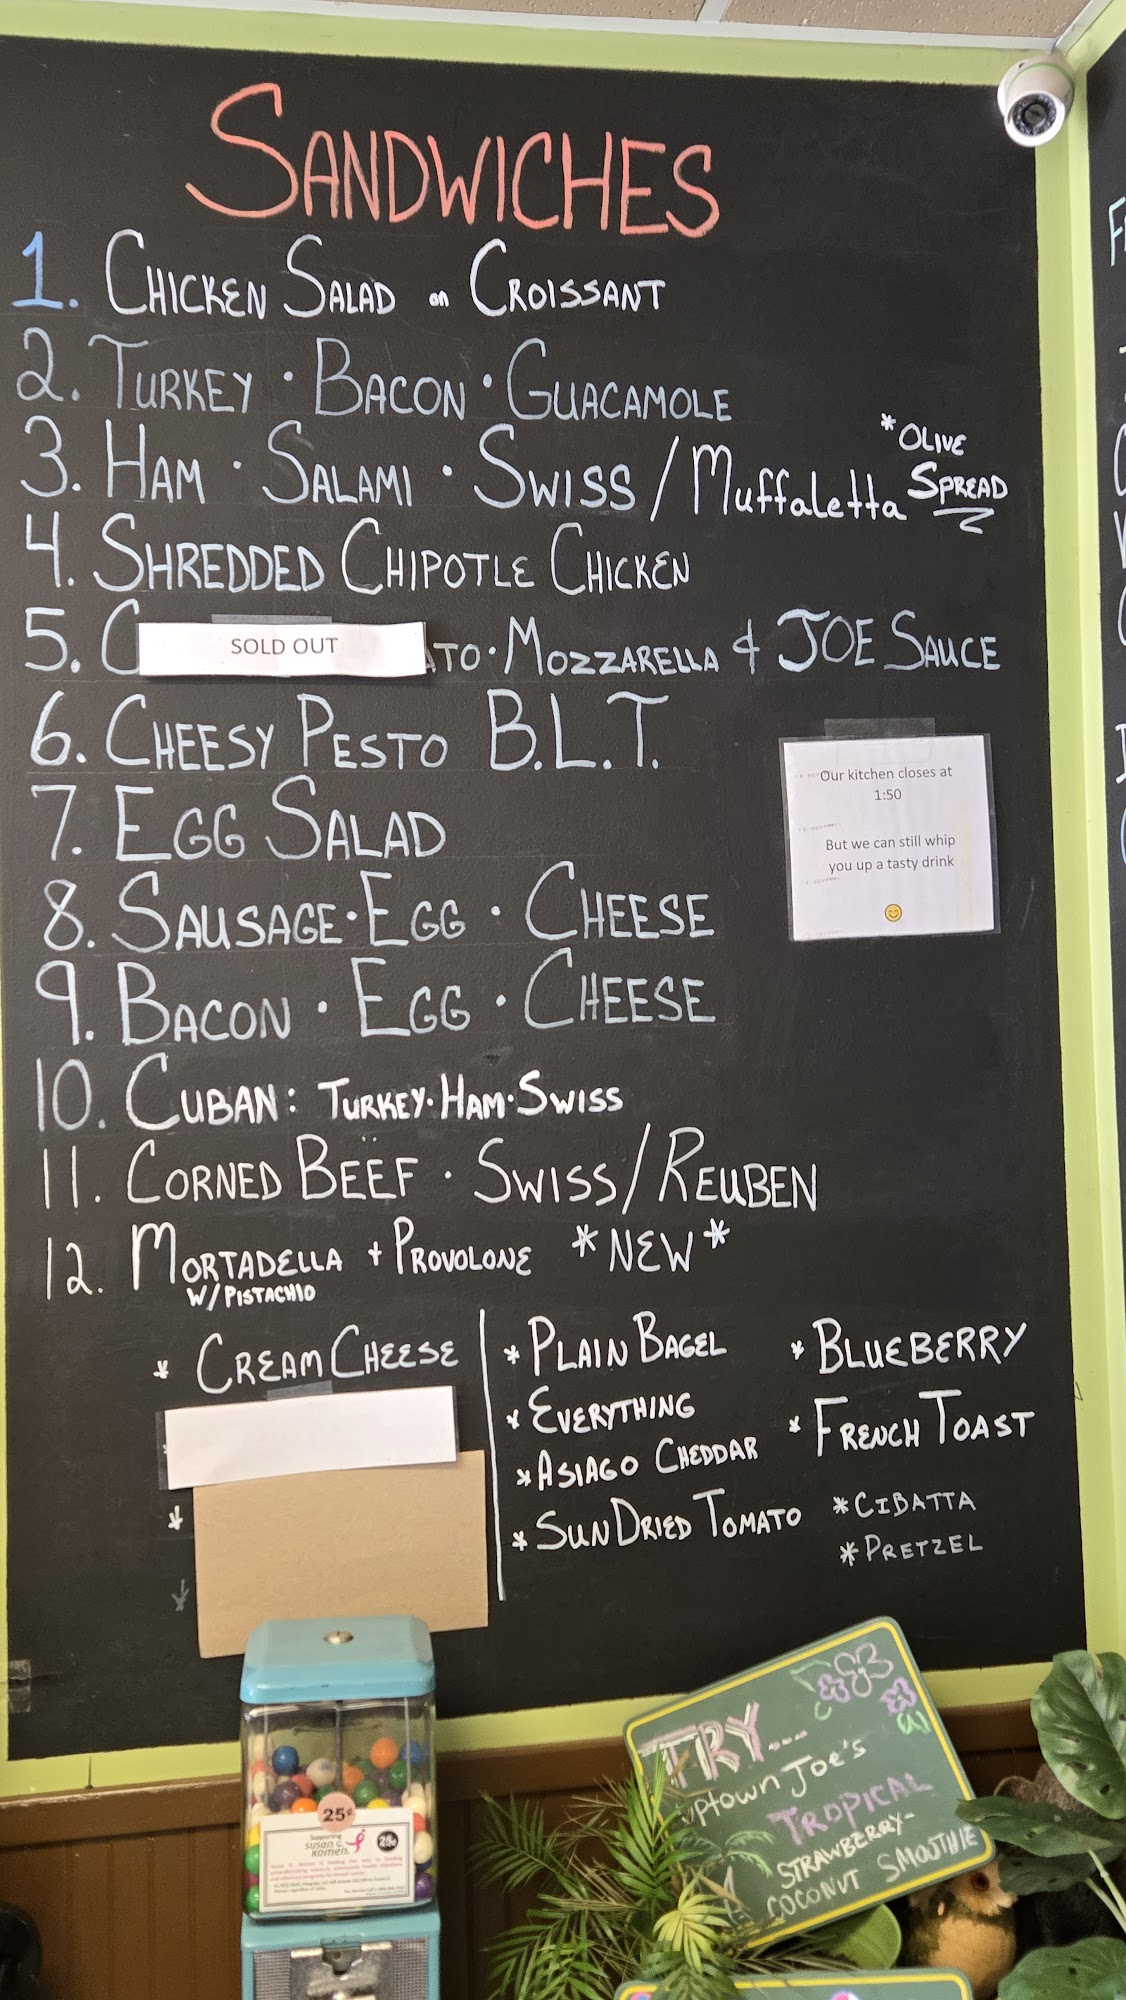 SANDWICHES
1. CHICKEN SALAD on CROISSANT
2. TURKEY · BACON · GUACAMOLE
3. HAM · SALAMI · SWISS / Muffaletta *OLIVE SPREAD
4. SHREDDED CHIPOTLE CHICKEN
5. SOLD OUT · MOZZARELLA & JOE SAUCE
6. CHEESY PESTO B.L.T.
7. EGG SALAD
8. SAUSAGE · EGG · CHEESE
9. BACON · EGG · CHEESE
10. CUBAN: TURKEY · HAM · SWISS
11. CORNED BEEF · SWISS / REUBEN
12. MORTADELLA + PROVOLONE *NEW*
W/ PISTACHIO
Our kitchen closes at
1:50
But we can still whip
you up a tasty drink
* CREAM CHEESE
* PLAIN BAGEL
* EVERYTHING
* ASIAGO CHEDDAR
* SUN DRIED TOMATO
* BLUEBERRY
* FRENCH TOAST
* CIBATTA
* PRETZEL
25¢
Supporting
susan G.
Komen.
25¢
TRY...
Uptown Joe's
TROPICAL
STRAWBERRY-
COCONUT SMOOTHIE